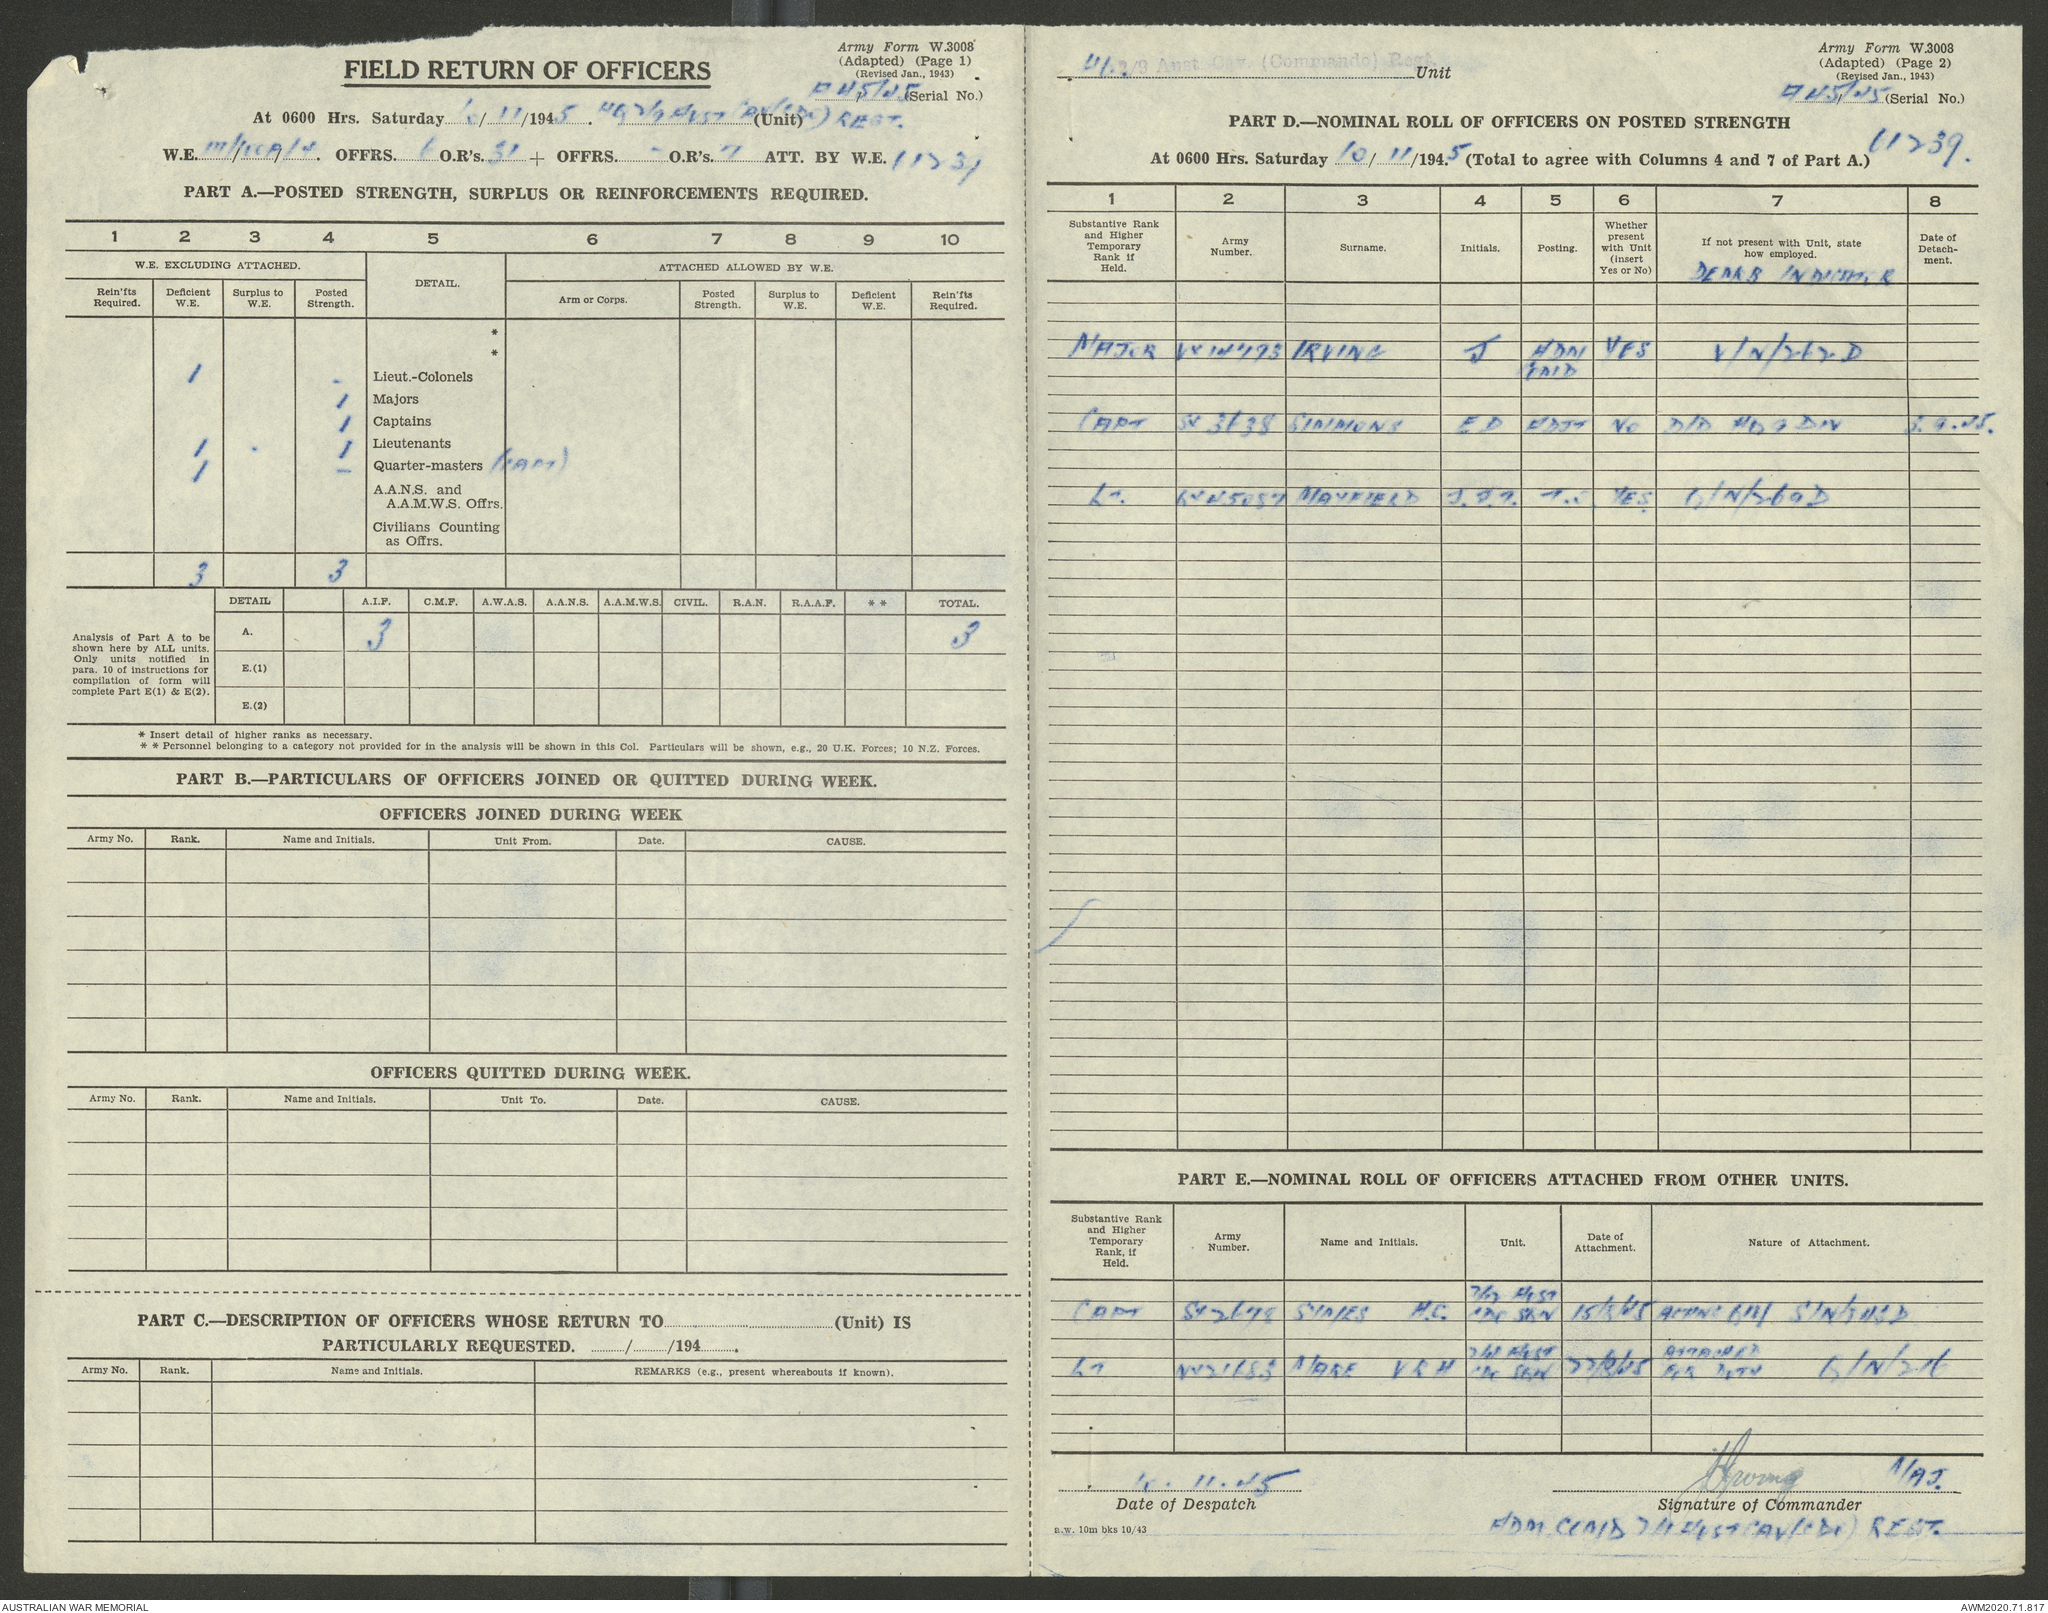 Army Form W.3008
(Adapted) (Page 1)
(Revised Jan., 1943)
FIELD RETURN OF OFFICERS
A45/45 (Serial No.)
At 0600 Hrs. Saturday 10/11/1945. HQ 2/9 AUST CAV (CDO) REGT. (Unit)
W.E. OFFRS. 6 O.R's. 31 + OFFRS. - O.R's. 7 ATT. BY W.E.
PART A.—POSTED STRENGTH, SURPLUS OR REINFORCEMENTS REQUIRED.
1 2 3 4 5 6 7 8 9 10
W.E. EXCLUDING ATTACHED. DETAIL. ATTACHED ALLOWED BY W.E.
Rein'fts Required. Deficient W.E. Surplus to W.E. Posted Strength. Arm or Corps. Posted Strength. Surplus to W.E. Deficient W.E. Rein'fts Required.
*
*
1 - Lieut.-Colonels
1 Majors
1 Captains
1 - 1 Lieutenants
1 - Quarter-masters
A.A.N.S. and
A.A.M.W.S. Offrs.
Civilians Counting
as Offrs.
3 3
DETAIL A.I.F. C.M.F. A.W.A.S. A.A.N.S. A.A.M.W.S. CIVIL. R.A.N. R.A.A.F. * * TOTAL.
Analysis of Part A to be
shown here by ALL units.
Only units notified in
para. 10 of instructions for
compilation of form will
complete Part E(1) & E(2).
A. 3 3
E.(1)
E.(2)
* Insert detail of higher ranks as necessary.
* * Personnel belonging to a category not provided for in the analysis will be shown in this Col. Particulars will be shown, e.g., 20 U.K. Forces; 10 N.Z. Forces.
PART B.—PARTICULARS OF OFFICERS JOINED OR QUITTED DURING WEEK.
OFFICERS JOINED DURING WEEK
Army No. Rank. Name and Initials. Unit From. Date. CAUSE.
OFFICERS QUITTED DURING WEEK.
Army No. Rank. Name and Initials. Unit To. Date. CAUSE.
PART C.—DESCRIPTION OF OFFICERS WHOSE RETURN TO (Unit) IS
PARTICULARLY REQUESTED. / /194 .
Army No. Rank. Name and Initials. REMARKS (e.g., present whereabouts if known).
Army Form W.3008
(Adapted) (Page 2)
(Revised Jan., 1943)
2/9 Aust. Cav. (Commando) Regt. Unit
A45/45 (Serial No.)
PART D.—NOMINAL ROLL OF OFFICERS ON POSTED STRENGTH
At 0600 Hrs. Saturday 10/11/1945 (Total to agree with Columns 4 and 7 of Part A.) 11239.
1 2 3 4 5 6 7 8
Substantive Rank and Higher Temporary Rank if Held. Army Number. Surname. Initials. Posting. Whether present with Unit (insert Yes or No) If not present with Unit, state how employed. Date of Detachment.
MAJOR IRVING J ADM COMD YES
CAPT SX3638 SIMMONS ED ADJT NO HQ 9 DIV
LT. MAYFIELD YES
PART E.—NOMINAL ROLL OF OFFICERS ATTACHED FROM OTHER UNITS.
Substantive Rank and Higher Temporary Rank, if Held. Army Number. Name and Initials. Unit. Date of Attachment. Nature of Attachment.
CAPT H.C. AUST CDO SQN 15/8/45
LT AUST CDO SQN ATTACHED
11.45
Date of Despatch
J Irving MAJ.
Signature of Commander
ADM COMD 2/9 AUST CAV (CDO) REGT.
a.w. 10m bks 10/43
AUSTRALIAN WAR MEMORIAL
AWM2020.71.817